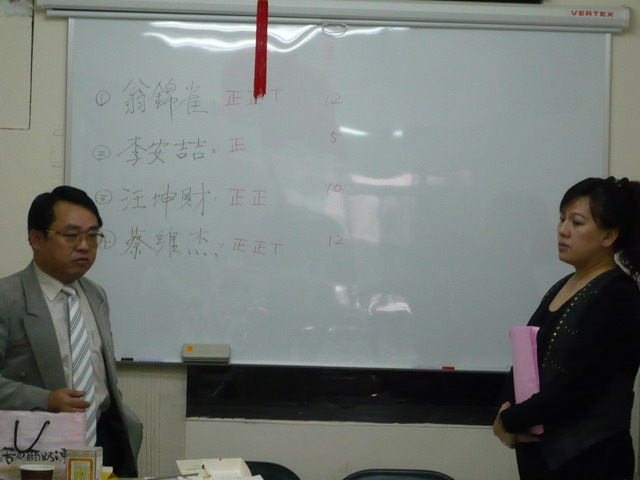 VERTEX
① 翁錦雀: 正正丅 12
② 李安喆: 正 5
③ 汪坤財: 正正 10
④ 蔡維杰: 正正丅 12